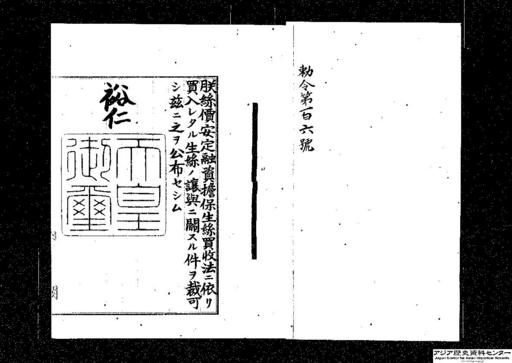 勅令第百六號
朕絲價安定融資擔保生絲買收法ニ依リ
買入レタル生絲ノ讓與ニ關スル件ヲ裁可
シ茲ニ之ヲ公布セシム
裕仁
天皇
御璽
アジア歴史資料センター
Japan Center for Asian Historical Records